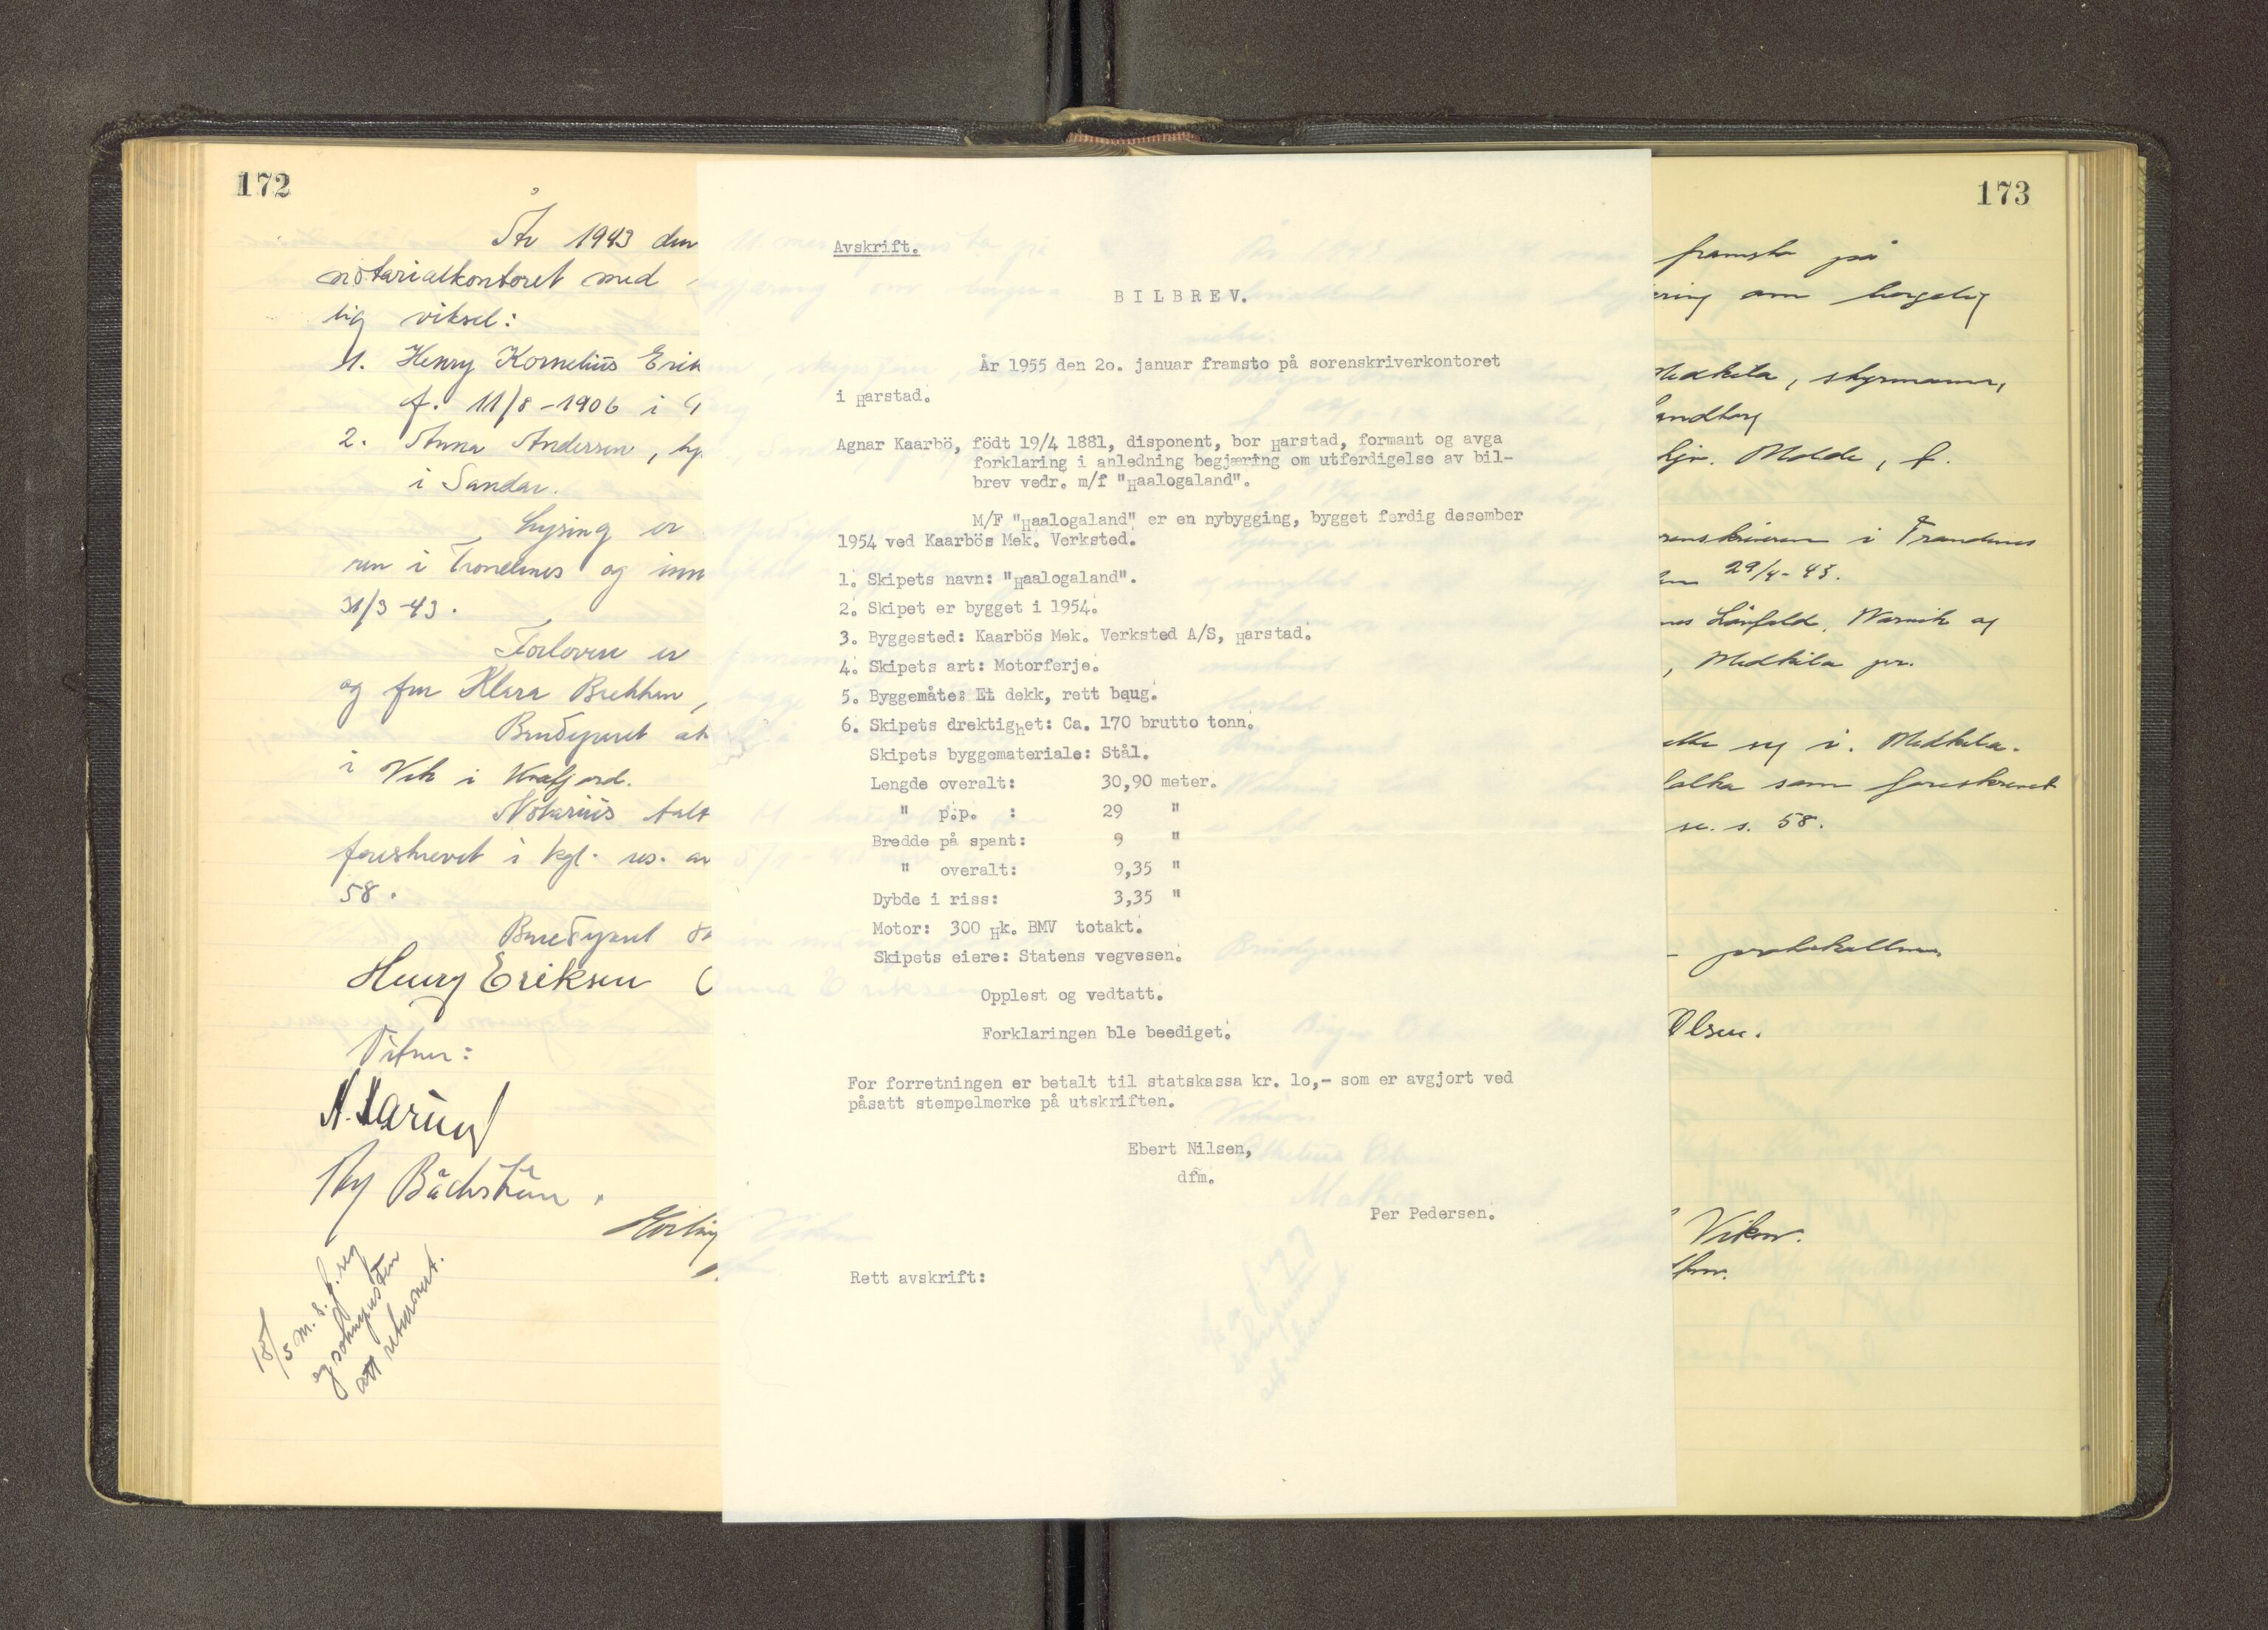 172
År 1943 den
notarialkontoret med
lig viksel:
1. Henry Kornelius Erik
f. 11/8-1906 i
2. Anna Andersen,
i Sandar.
Lysing er
ren i Trondenes og inn
31/3-43.
Forlovere er
og fru Klara Brekken,
Brudeparet ak
i Vik i Kvæfjord.
Notarius talt
foreskrevet i kgl. res. av
58.
Brudeparet
Henry Eriksen
Vitner:
18/5 m. s. f. reg
att returnert.
Avskrift.
BILBREV.
År 1955 den 2o. januar framsto på sorenskriverkontoret
i Harstad.
Agnar Kaarbö, födt 19/4 1881, disponent, bor Harstad, formant og avga
forklaring i anledning begjæring om utferdigelse av bil-
brev vedr. m/f "Haalogaland".
M/F "Haalogaland" er en nybygging, bygget ferdig desember
1954 ved Kaarbös Mek. Verksted.
1. Skipets navn: "Haalogaland".
2. Skipet er bygget i 1954.
3. Byggested: Kaarbös Mek. Verksted A/S, Harstad.
4. Skipets art: Motorferje.
5. Byggemåte: Et dekk, rett baug.
6. Skipets drektighet: Ca. 170 brutto tonn.
Skipets byggemateriale: Stål.
Lengde overalt: 30,90 meter.
" p.p. : 29 "
Bredde på spant: 9 "
" overalt: 9,35 "
Dybde i riss: 3,35 "
Motor: 300 Hk. BMV totakt.
Skipets eiere: Statens vegvesen.
Opplest og vedtatt.
Forklaringen ble beediget.
For forretningen er betalt til statskassa kr. lo,- som er avgjort ved
påsatt stempelmerke på utskriften.
Ebert Nilsen,
dfm.
Per Pedersen.
Rett avskrift:
173
framsto på
ering om borgelig
Medkila, styrmann,
Sandtorg
hjv. Molde, f.
renskriveren i Trondenes
29/4-43.
Warvik og
, Medkila pr.
seg i. Medkila.
som foreskrevet
se. s. 58.
protokollen
Olsen.
Viken.